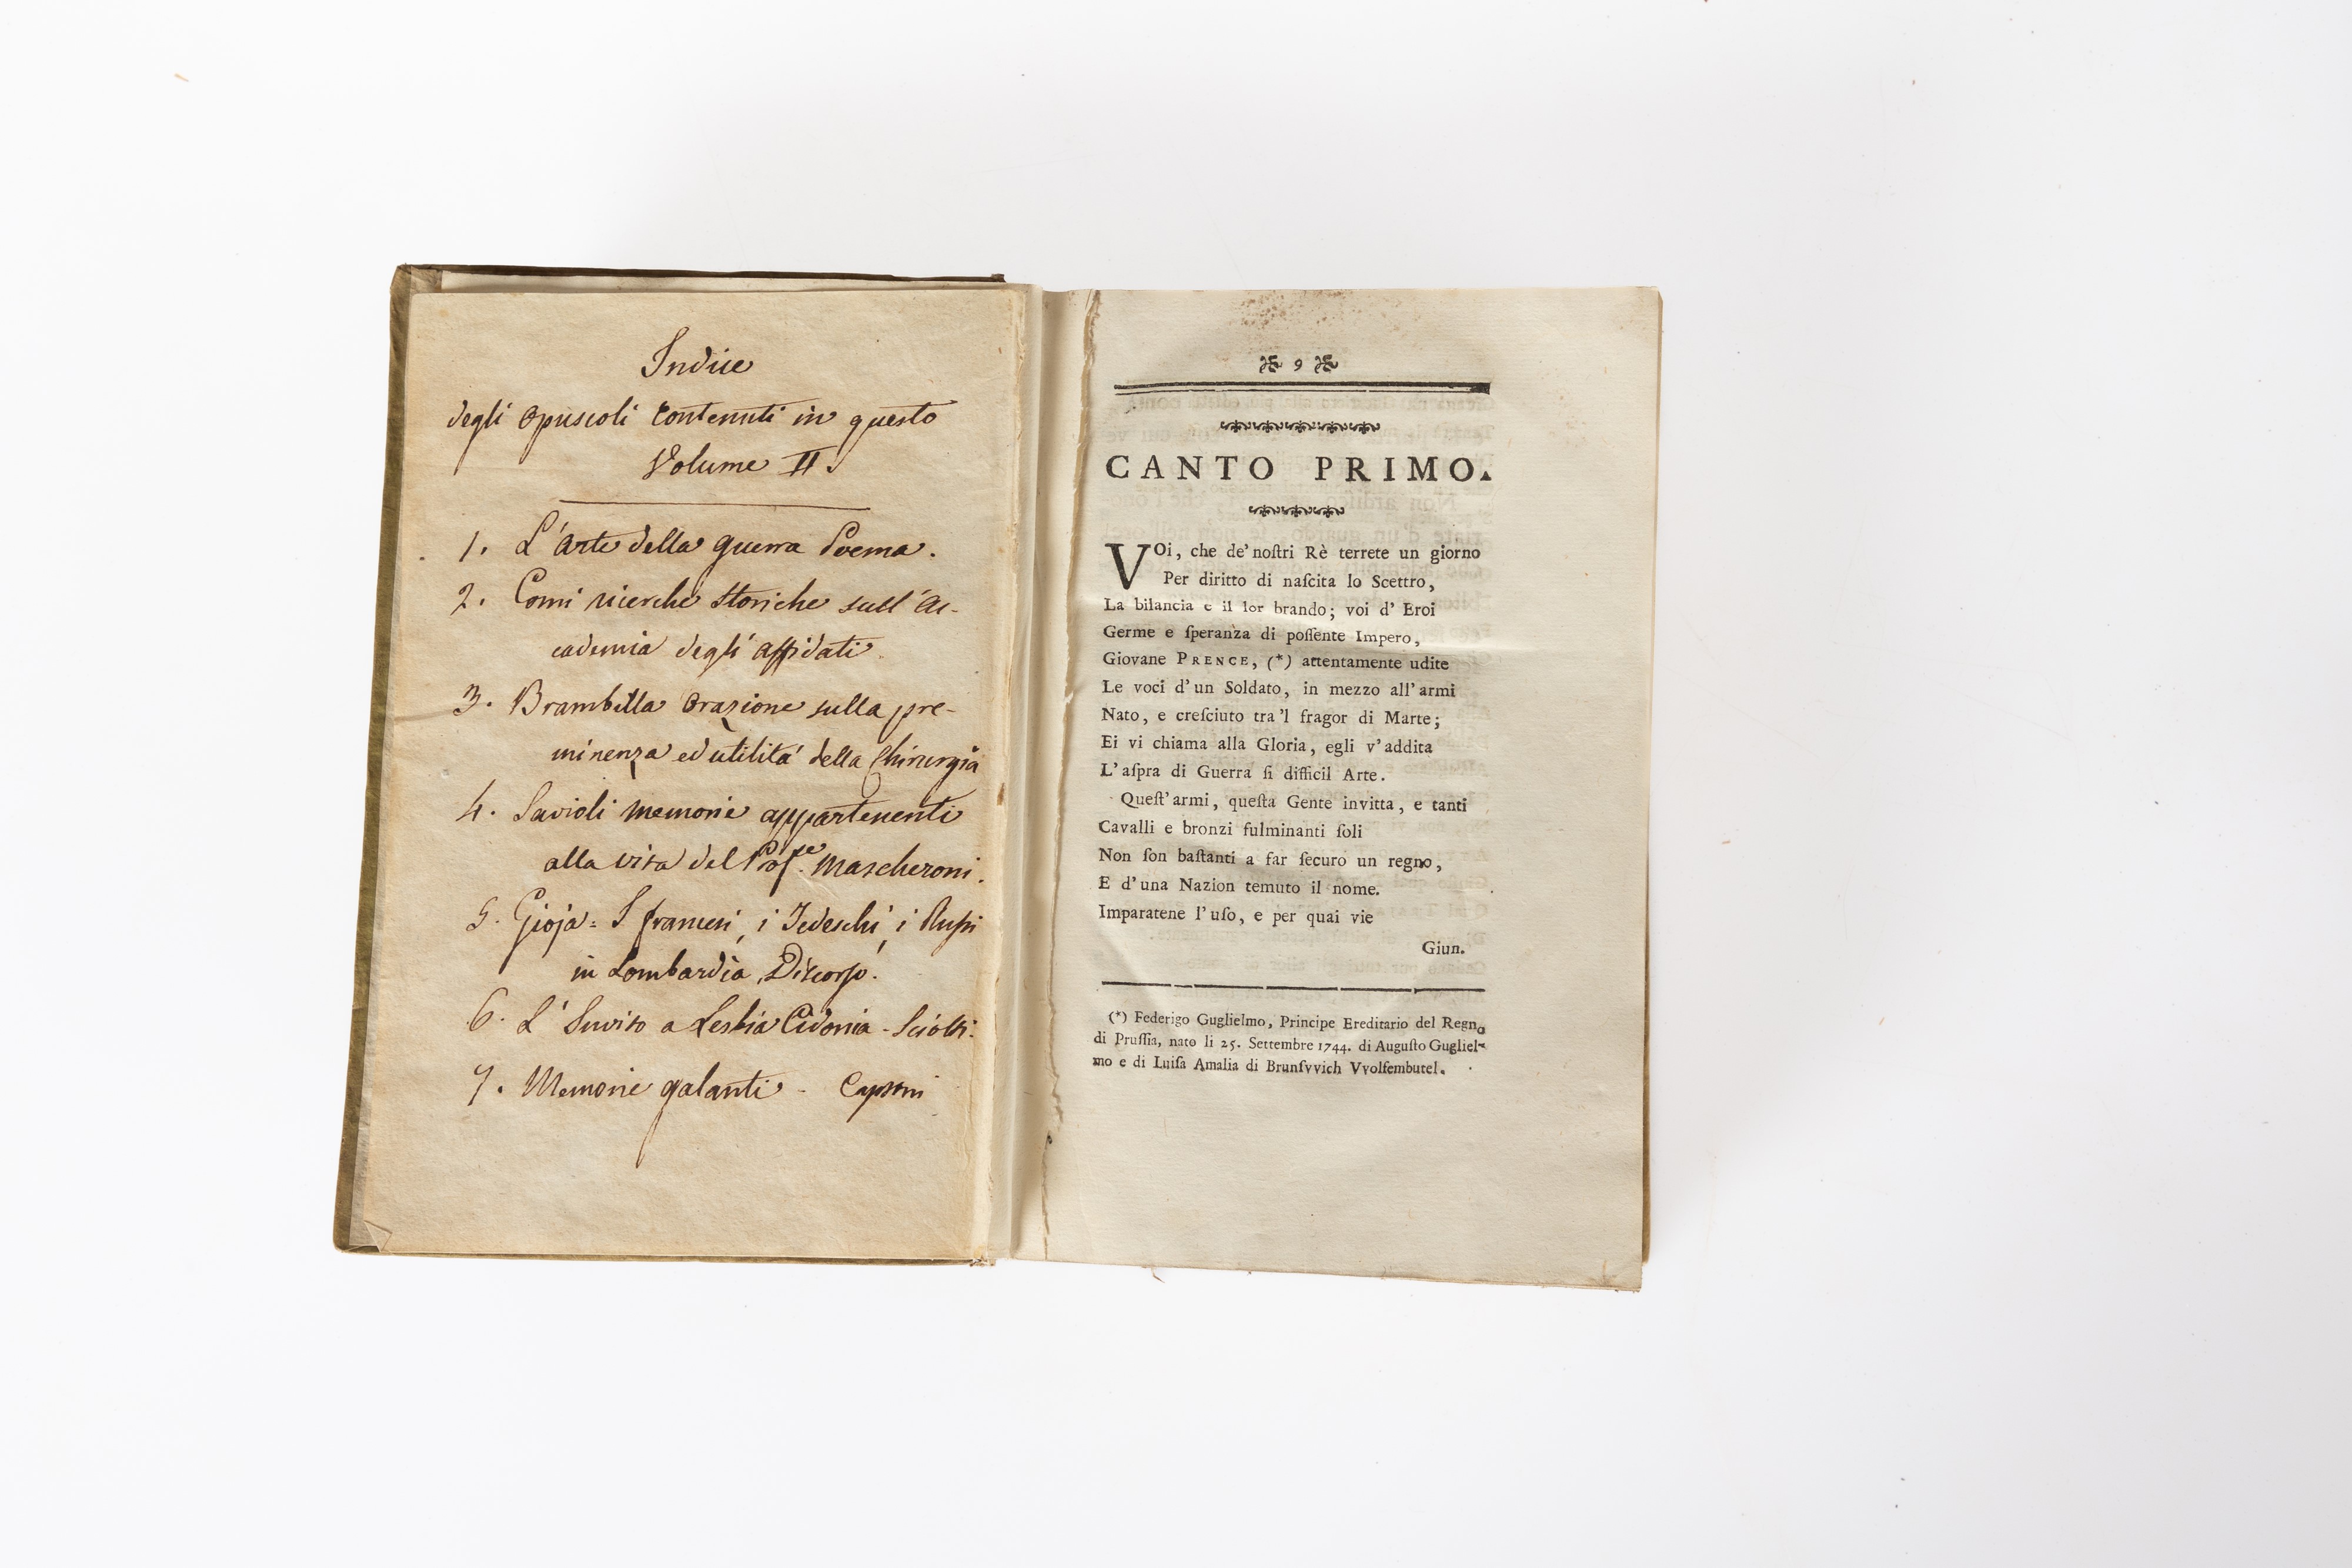 Indice
degli opuscoli contenuti in questo
Volume II.
1. L'arte della guerra Poema.
2. Comi ricerche storiche sull'Ac-
cademia degli affidati
3. Brambilla orazione sulla pre-
minenza ed utilitá della Chirurgia
4. Savioli memorie appartenenti
alla vita del Profe. Mascheroni.
5. Gioja = I francesi, i Tedeschi, i Russi
in Lombardia, Discorso.
6. L'Invito a Lesbia Cidonia - Sciolti.
7. Memorie galanti - Capsoni
9
CANTO PRIMO.
VOi, che de' noſtri Rè terrete un giorno
Per diritto di naſcita lo Scettro,
La bilancia e il lor brando; voi d' Eroi
Germe e ſperanza di poſſente Impero,
Giovane PRENCE, (*) attentamente udite
Le voci d'un Soldato, in mezzo all'armi
Nato, e creſciuto tra 'l fragor di Marte;
Ei vi chiama alla Gloria, egli v'addita
L'aſpra di Guerra ſi difficil Arte.
Queſt'armi, queſta Gente invitta, e tanti
Cavalli e bronzi fulminanti ſoli
Non ſon baſtanti a far ſecuro un regno,
E d'una Nazion temuto il nome.
Imparatene l'uſo, e per quai vie
Giun.
(*) Federigo Guglielmo, Principe Ereditario del Regno
di Pruſſia, nato li 25. Settembre 1744. di Auguſto Gugliel-
mo e di Luiſa Amalia di Brunſvvich Vvolfembutel.